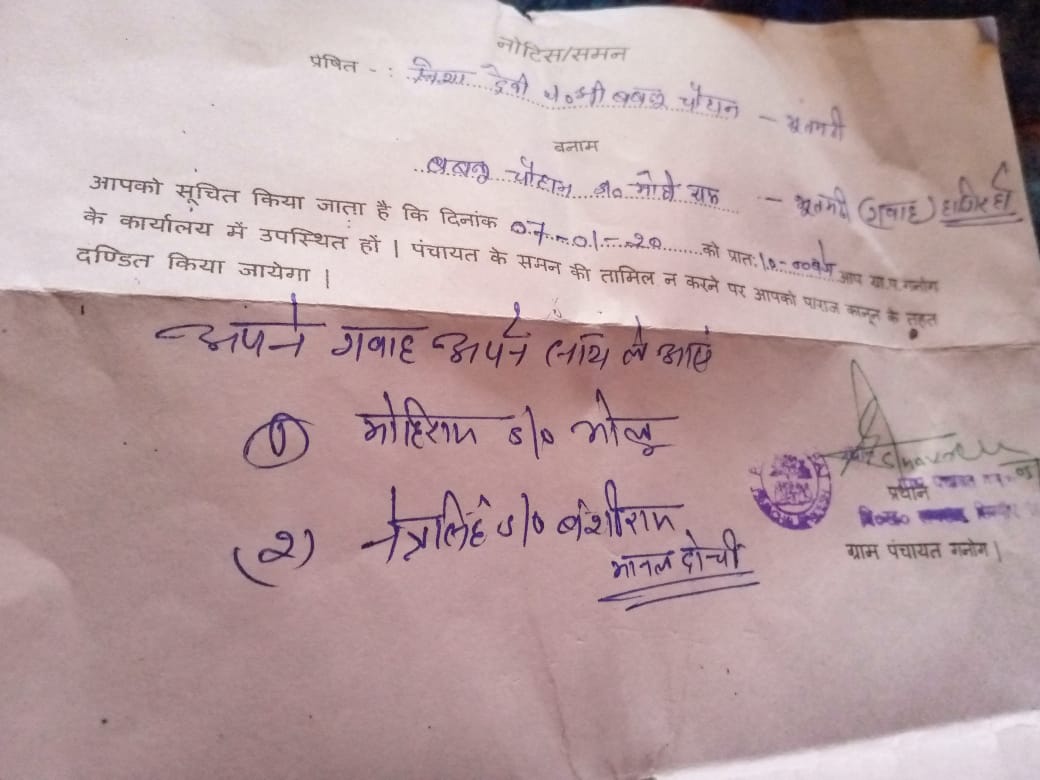 नोटिस/समन
प्रेषित -: देवी प०श्री बबलू चौहान - भूतमढी
बनाम
बबलू चौहान s/o मोही राम - भूतमढी (गवाह) हाजिर हों
आपको सूचित किया जाता है कि दिनांक 07-01-20 को प्रात: 10-00 बजे आप ग्रा.प.गनोग
के कार्यालय में उपस्थित हों | पंचायत के समन की तामिल न करने पर आपको पाराज कानून के तहत
दण्डित किया जायेगा |
अपने गवाह अपने साथ ले आएं
(1) मोहिराम s/o भोलू
(2) नेत्रसिंह s/o बंशीराम
प्रधान
ग्राम पंचायत गनोग |